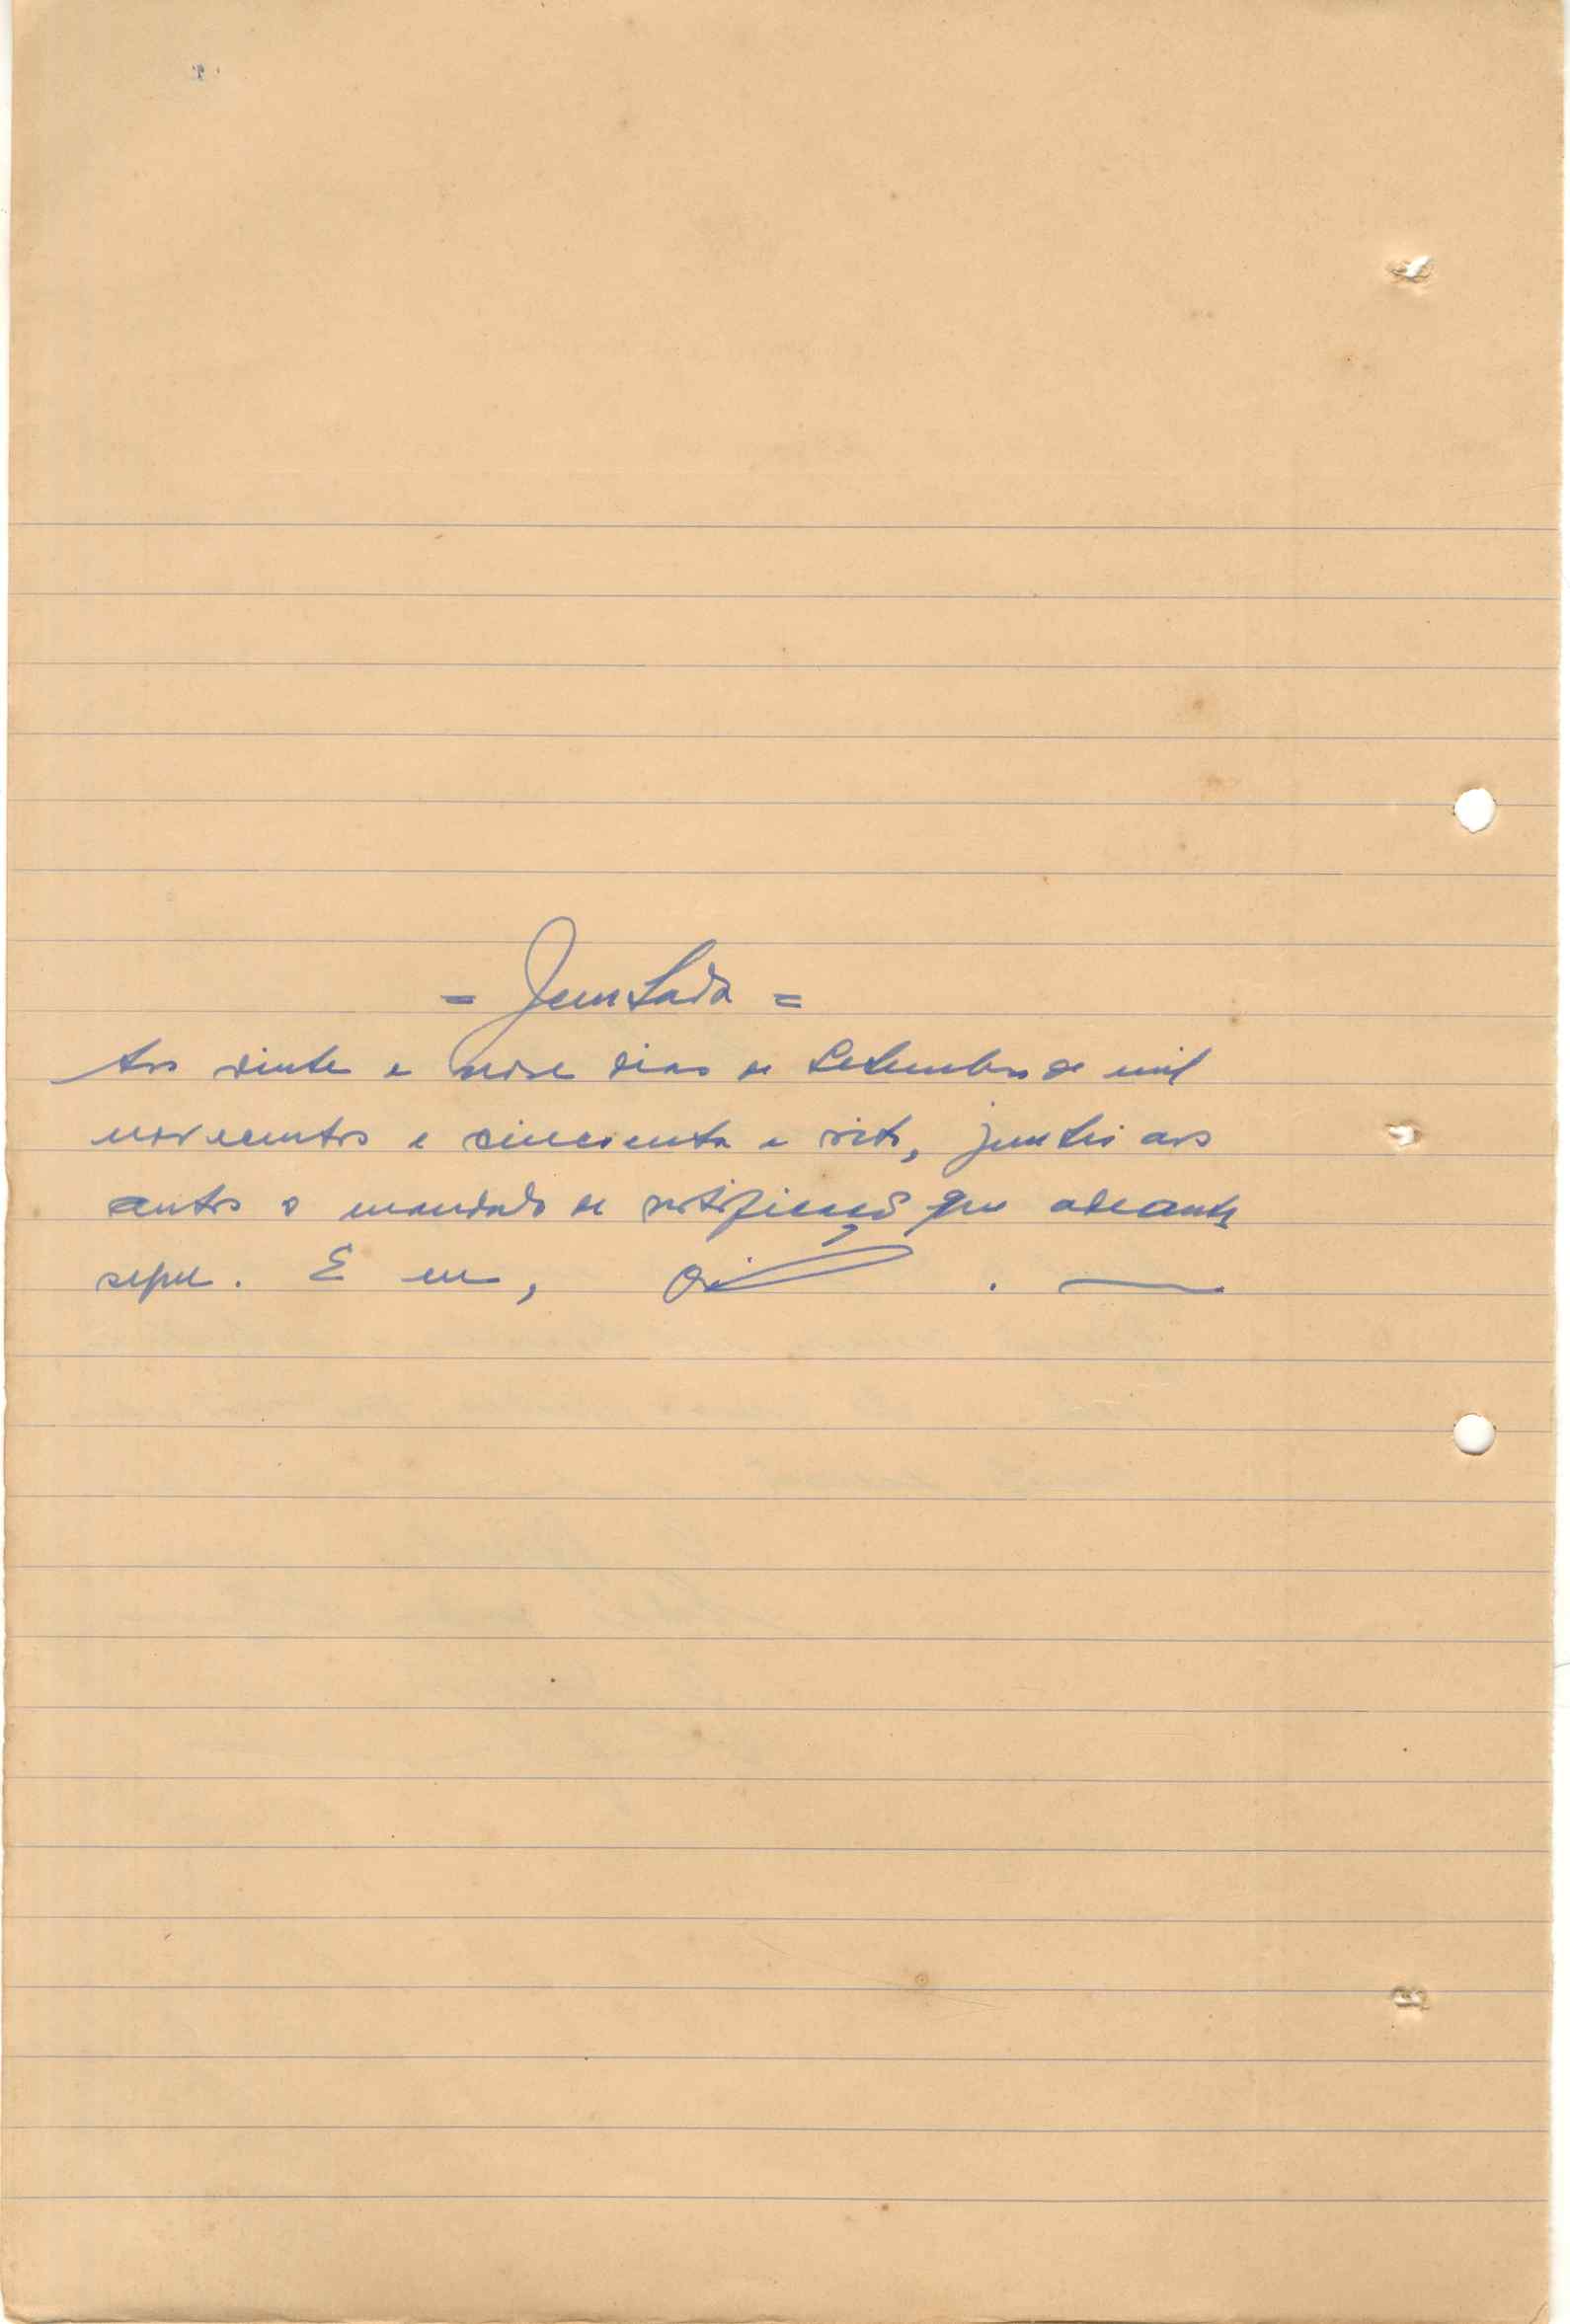 = Juntada =
Aos vinte e nove dias de Setembro de mil
novecentos e cincoenta e oito, juntei aos
autos o mandado de notificação que adeante
segue. E eu,